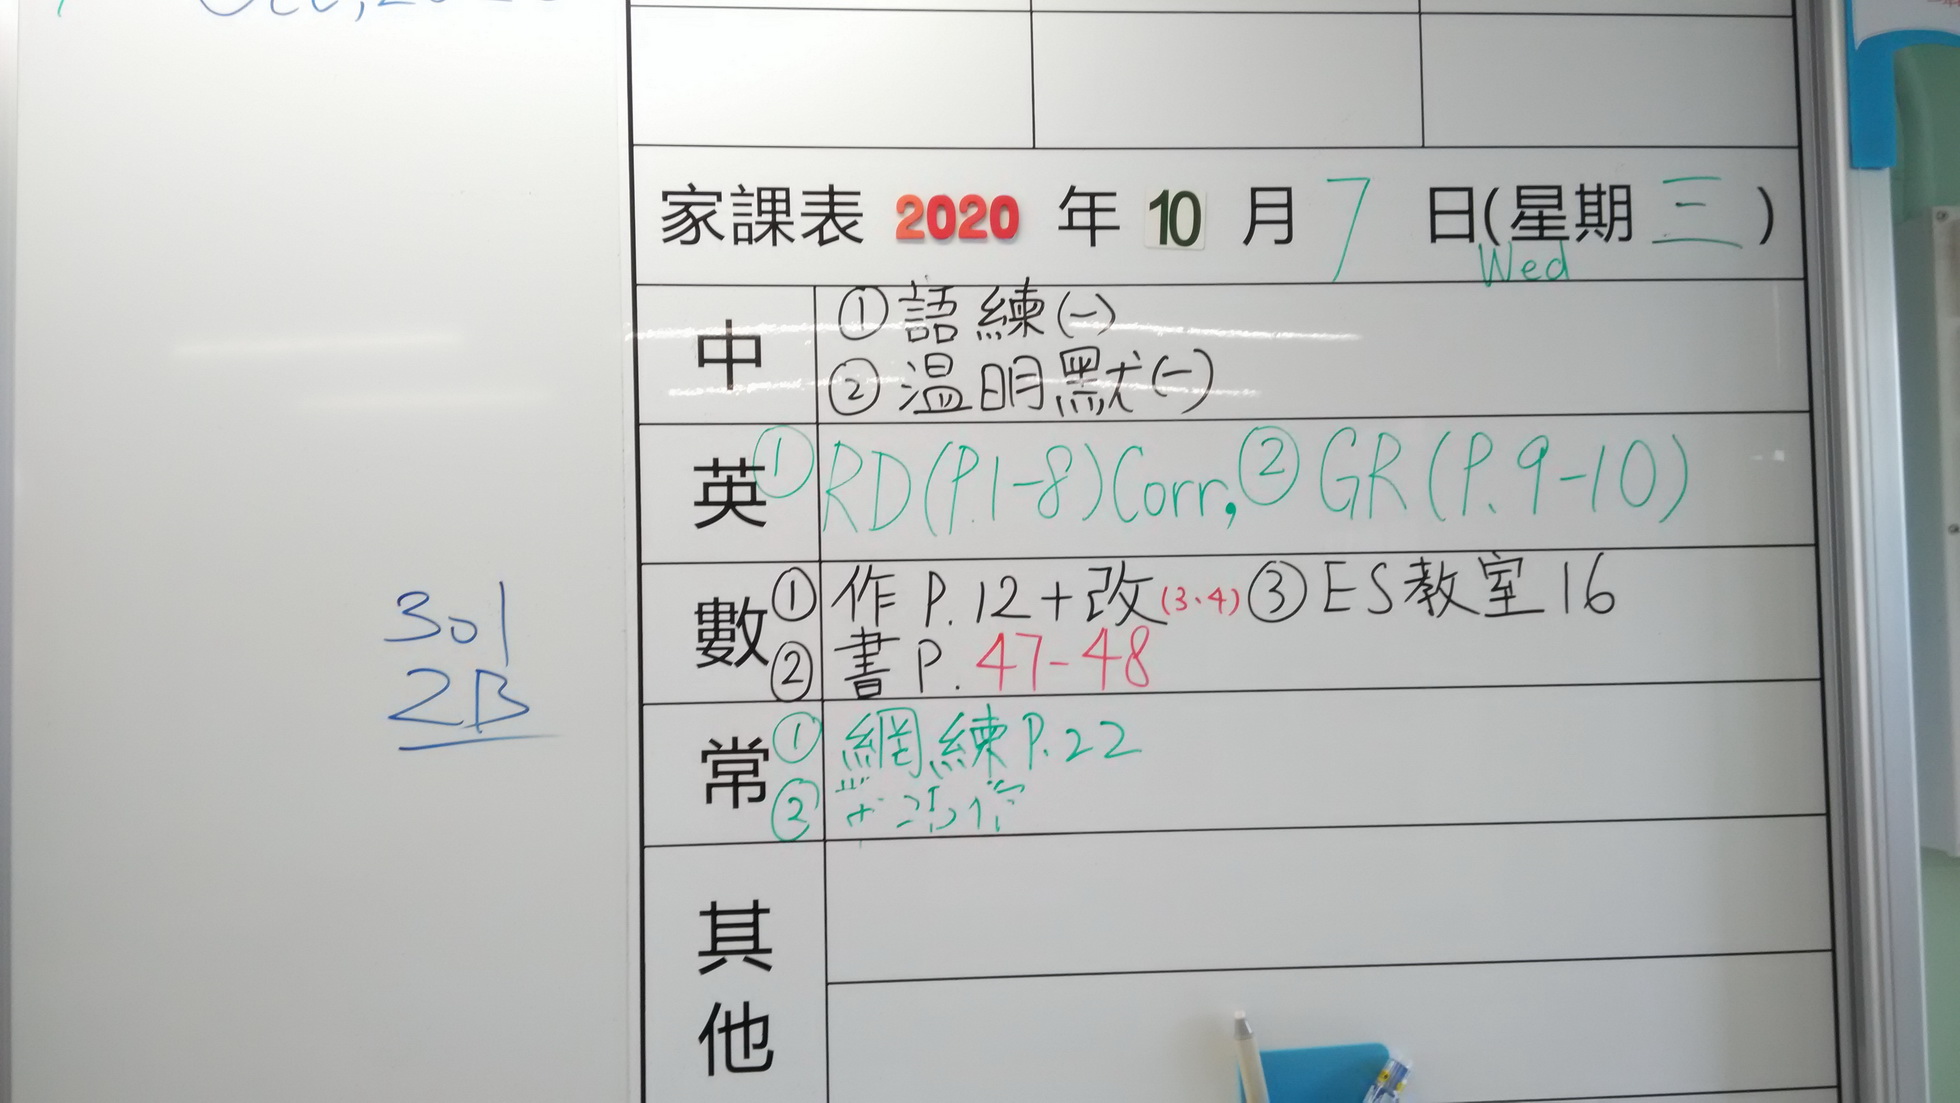 家課表 2020 年 10 月 7 日(星期 三)
Wed
中
①語練(一)
②溫明默(一)
英
①RD(P.1-8)Corr, ②GR(P.9-10)
數
①作P.12+改(3.4) ③ES教室16
②書P.47-48
常
①網練P.22
②
其他
301
2B